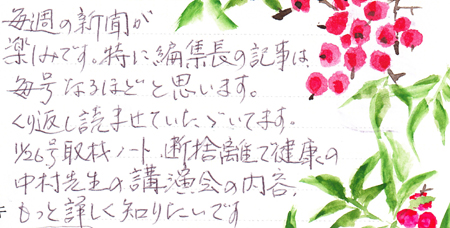 毎週の新聞が
楽しみです。特に編集長の記事は
毎号なるほどと思います。
くり返し読ませていただいてます。
11/26号取材ノート 断捨離で健康の
中村先生の講演会の内容、
もっと詳しく知りたいです